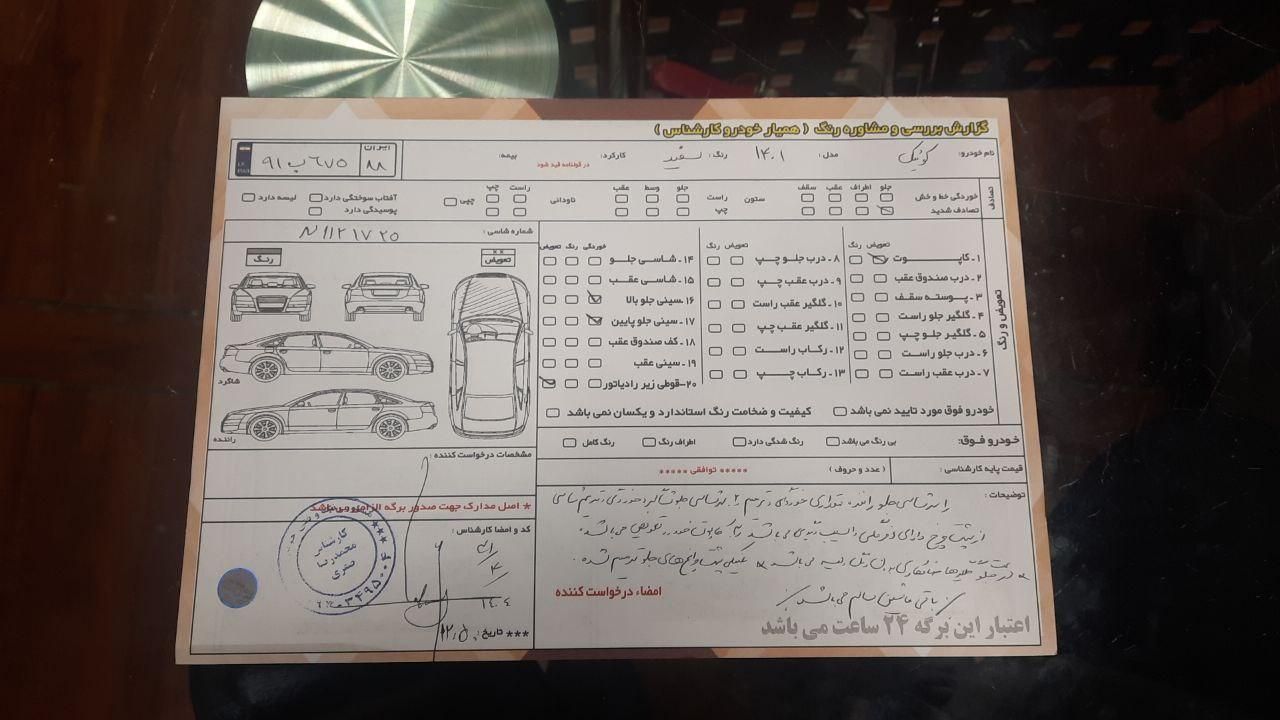 گزارش بررسی و مشاوره رنگ ( همیار خودرو کارشناس )
نام خودرو: کوئیک مدل: ۱۴۰۱ رنگ: سفید کارکرد: در قولنامه قید شود بیمه:
ایران ۸۸ ۶۷۵ ب ۹۱
تصادف
جلو اطراف عقب سقف جلو وسط عقب راست چپ
خوردگی خط و خش ستون راست ناودانی چپی آفتاب سوختگی دارد لیسه دارد
تصادف شدید چپ پوسیدگی دارد
شماره شاسی: N1121725
تعویض و رنگ
تعویض رنگ تعویض رنگ خوردگی رنگ تعویض
۱ـ کاپوت ۸ ـ درب جلو چپ ۱۴ ـ شاسی جلو
۲ـ درب صندوق عقب ۹ ـ درب عقب چپ ۱۵ ـ شاسی عقب
۳ـ پوسته سقف ۱۰ ـ گلگیر عقب راست ۱۶ ـ سینی جلو بالا
۴ ـ گلگیر جلو راست ۱۱ ـ گلگیر عقب چپ ۱۷ ـ سینی جلو پایین
۵ ـ گلگیر جلو چپ ۱۲ ـ رکاب راست ۱۸ ـ کف صندوق عقب
۶ ـ درب جلو راست ۱۳ ـ رکاب چپ ۱۹ ـ سینی عقب
۷ ـ درب عقب راست ۲۰ـ قوطی زیر رادیاتور
رنگ
×× تعویض
شاگرد
راننده
خودرو فوق مورد تایید نمی باشد کیفیت و ضخامت رنگ استاندارد و یکسان نمی باشد
خودرو فوق: بی رنگ می باشد رنگ شدگی دارد اطراف رنگ رنگ کامل
قیمت پایه کارشناسی: ( عدد و حروف ) ***** توافقی *****
توضیحات:
شاسی جلو خوردگی و ترمیم شاسی جلو خوردگی و ترمیم
از پشت چرخ دارای می باشد کاپوت خودرو تعویض می باشد
جلو گلگیرها می باشد جلو ترمیم شده
باقی ماشین سالم می باشد
امضاء درخواست کننده
اعتبار این برگه ۲۴ ساعت می باشد
مشخصات درخواست کننده:
* اصل مدارک جهت صدور برگه الزامی می باشد
کد و امضا کارشناس:
کارشناس
محمدرضا
صفری
۳۴۹۵۰۰۴
۱۴۰۴
*** تاریخ: